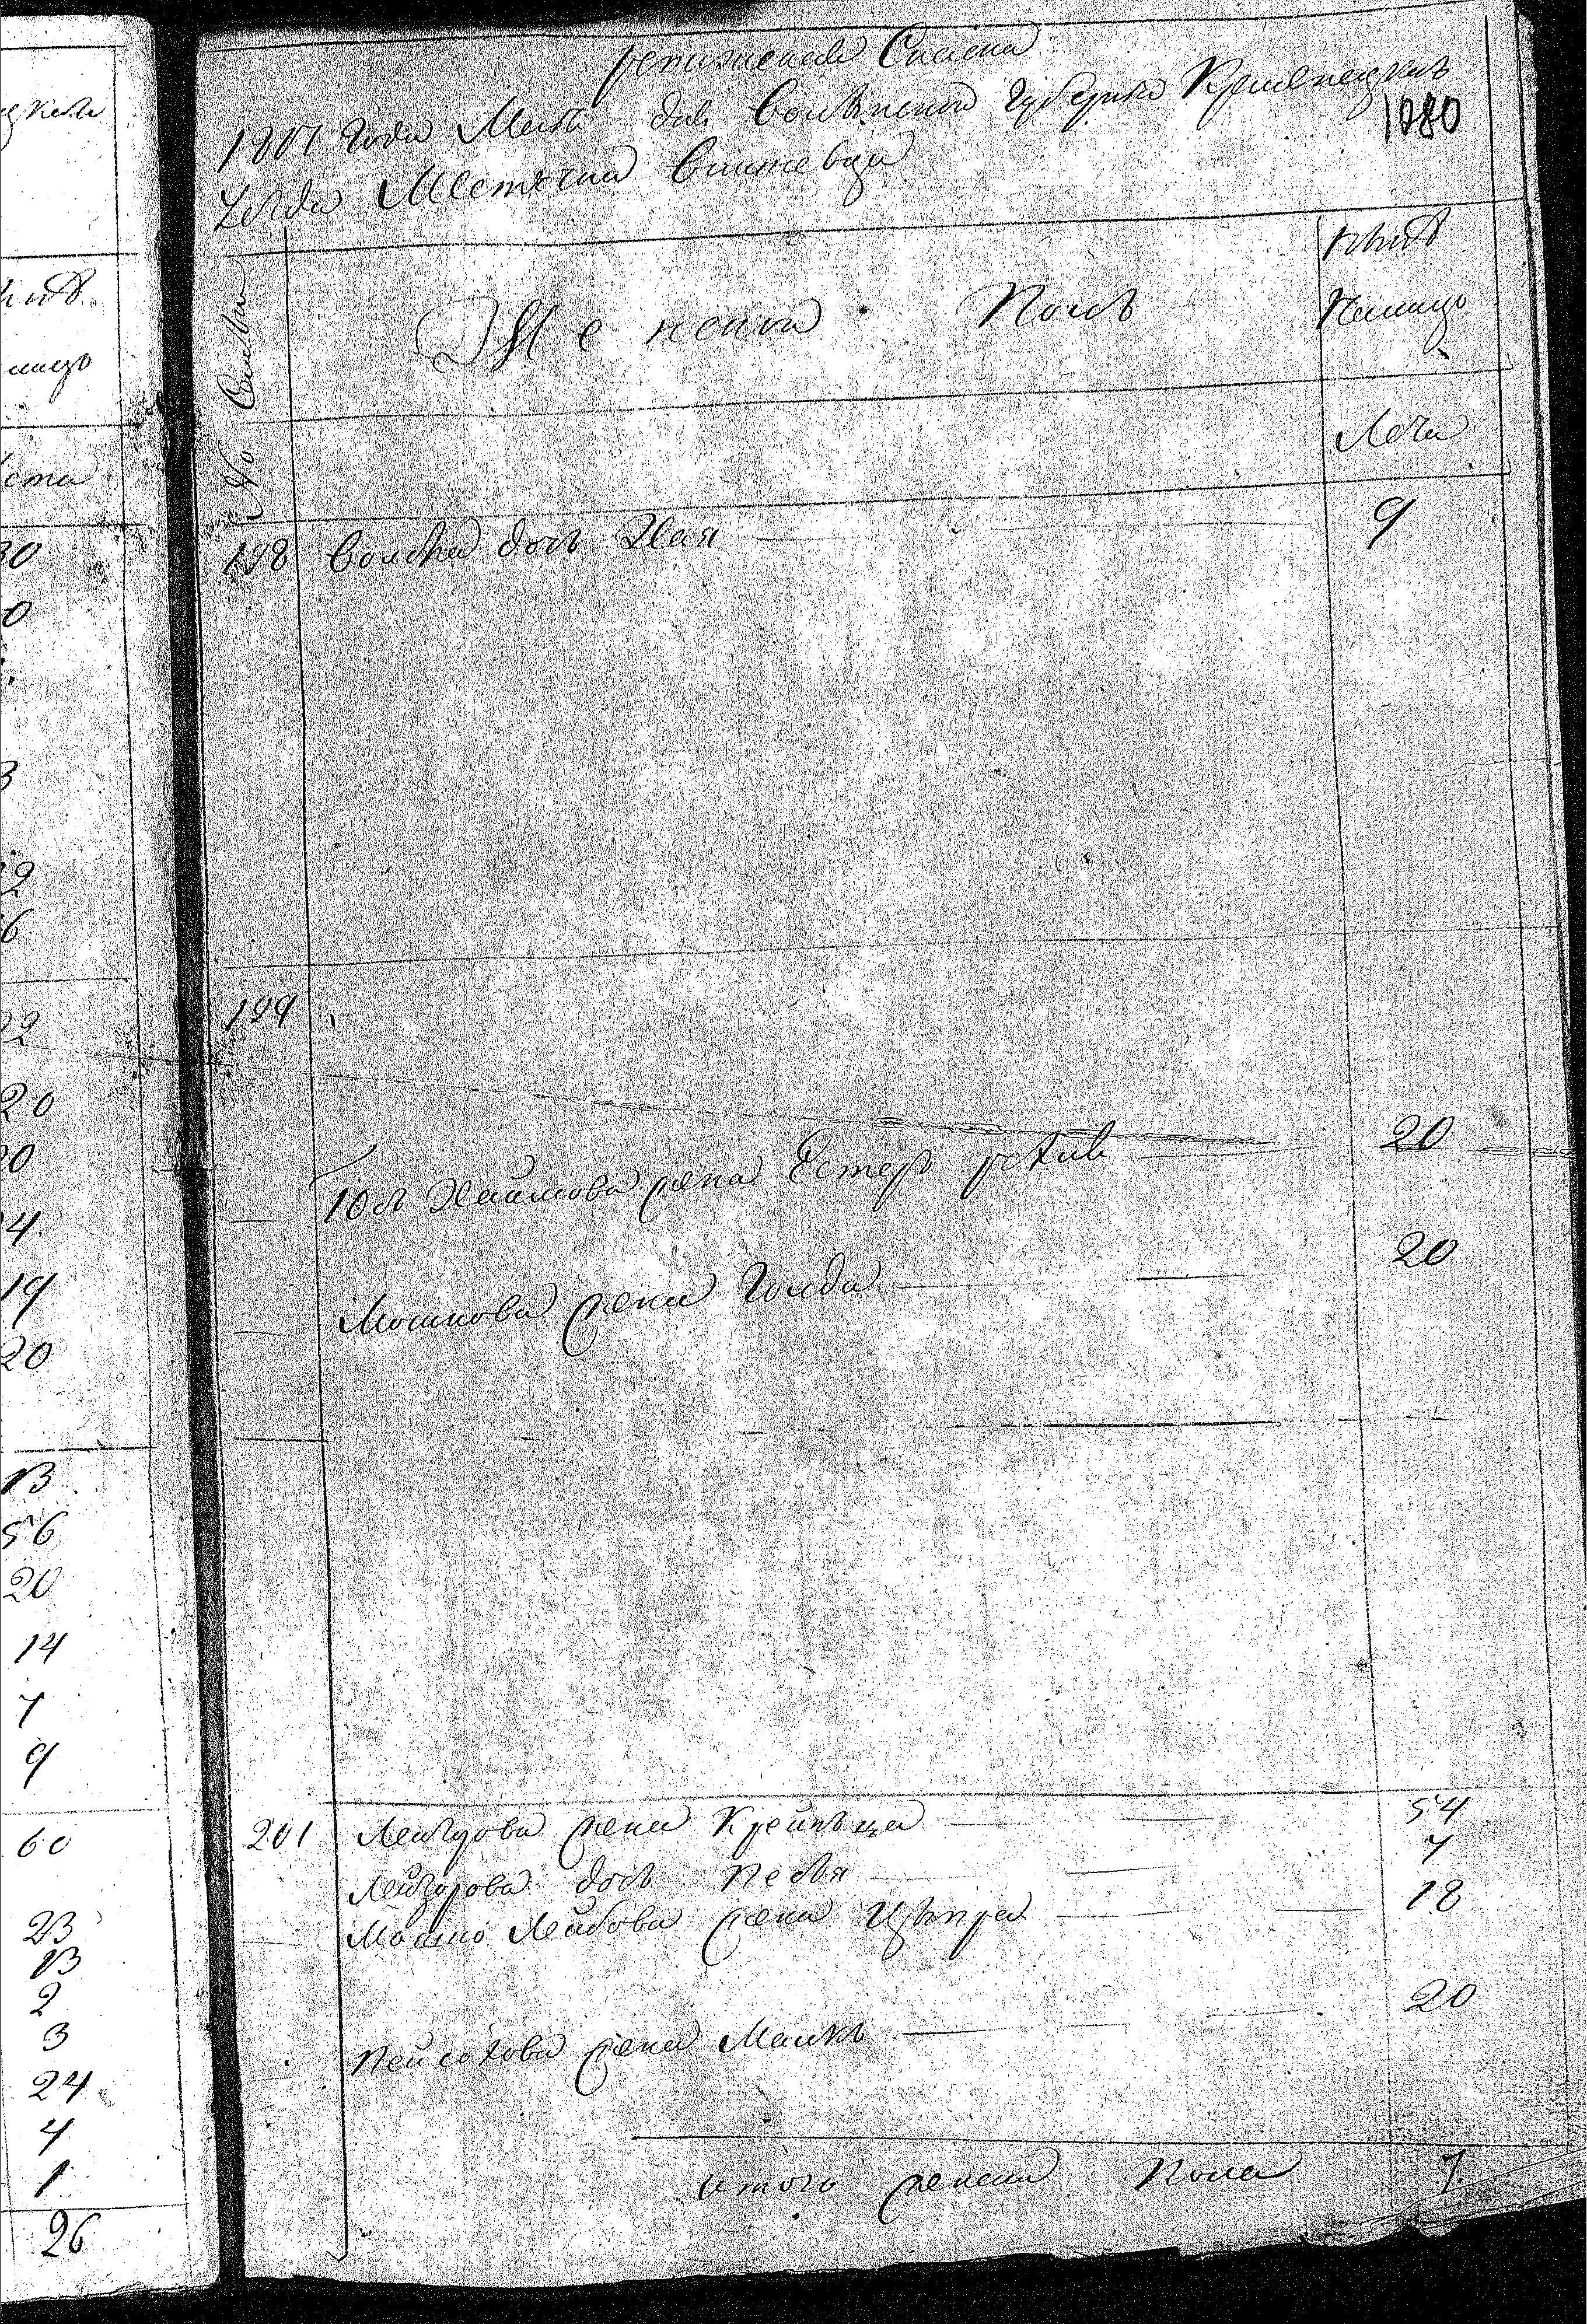 Ревизская Сказка
1811 года Маія дня Волынской Губерніи Кременецкаго
1080
Уезда Местечка Вишневца
№ Семьи
Женской Полъ
нынѣ
налицо
Лета
198 Волька дочь Хая 9
199
Юсь Хаимова жена Естеръ 20
Мошкова жена Голда 20
201 Лейзорова жена Крейнъца 54
Лейзорова дочь Песя 7
Мошко Лейбова жена Ципра 18
Пейсахова жена Малка 20
итого женска Пола 7
кого
нѣ
лицо
ета
30
0
3
2
6
22
20
0
4
19
20
13
56
20
14
7
9
60
23
13
2
3
24
4
1
26